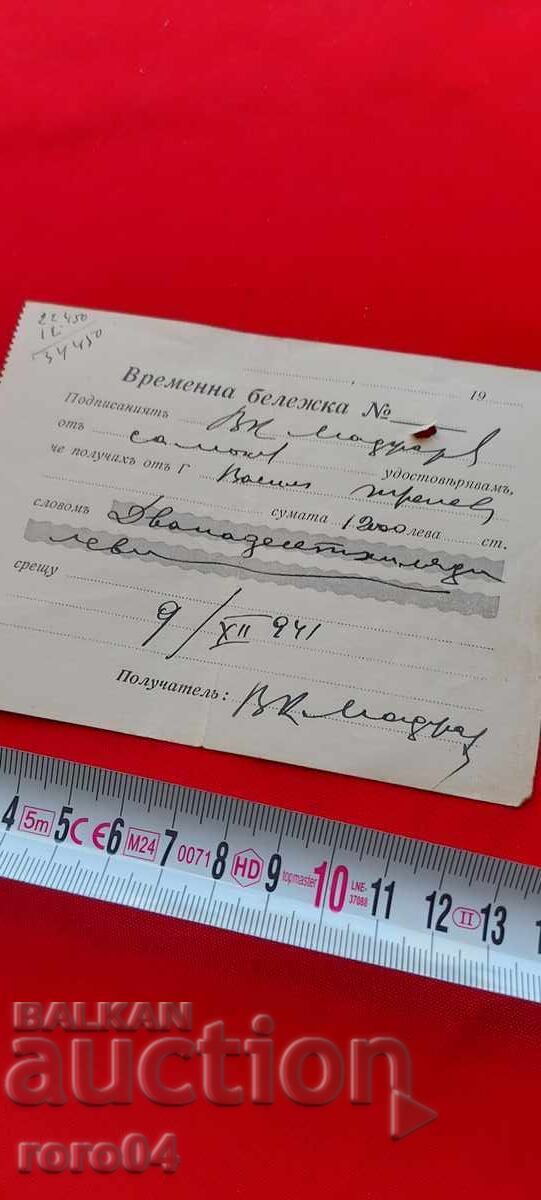 22 450
12
34 450
19
Временна бележка №
Подписаниятъ ВК Маджаров
отъ самоков удостовѣрявамъ,
че получихъ отъ Г Васил
сумата 12000 лева ст.
словомъ Дванадесетхиляди
леви
срещу
9/XII 941
Получатель: ВК Маджаров
4 5m 5 CЄ 6 M24 7 0071 8 HD 9 topmaster 10 LNE-37088 11 12 II 13
BALKAN
auction
roro04